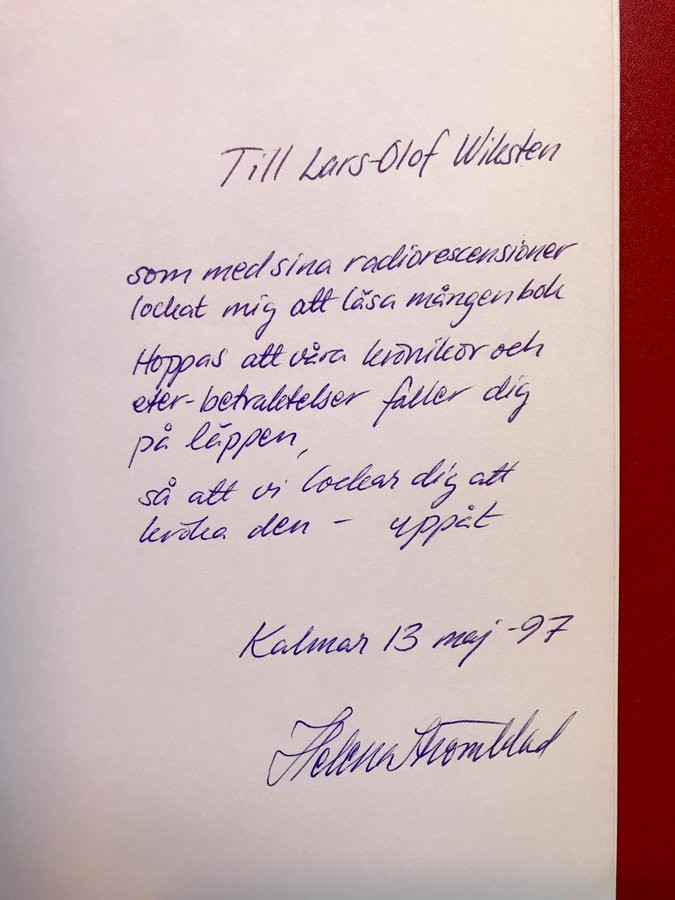 Till Lars-Olof Wiksten
som med sina radiorescensioner
lockat mig att läsa mången bok
Hoppas att våra krönikor och
eter-betraktelser faller dig
på läppen,
så att vi lockar dig att
kröka den - uppåt
Kalmar 13 maj -97
Helena Strömblad